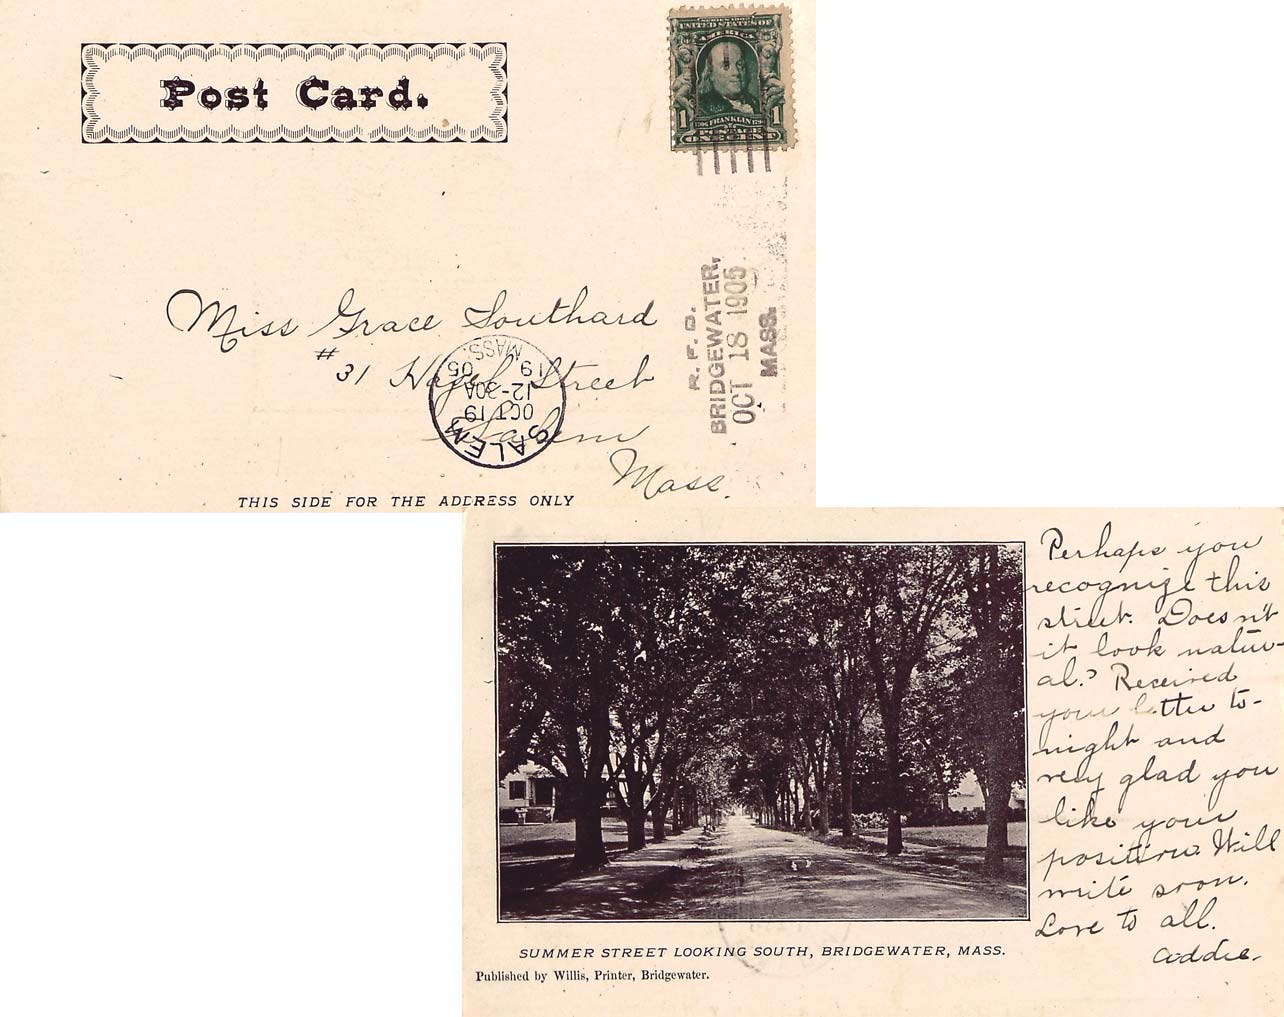 Post Card.
SERIES 1902
UNITED STATES OF
AMERICA
1 1706 FRANKLIN 1790 1
ONE CENT
R. F. D.
BRIDGEWATER,
OCT 18 1905
MASS.
Miss Grace Southard
#31 Hazel Street
Salem
Mass.
SALEM
OCT 19
12-30A
19 05
MASS.
THIS SIDE FOR THE ADDRESS ONLY
Perhaps you
recognize this
street. Doesn't
it look natur-
al? Received
your letter to-
night and
very glad you
like your
position. Will
write soon.
Love to all.
Addie.
SUMMER STREET LOOKING SOUTH, BRIDGEWATER, MASS.
Published by Willis, Printer, Bridgewater.